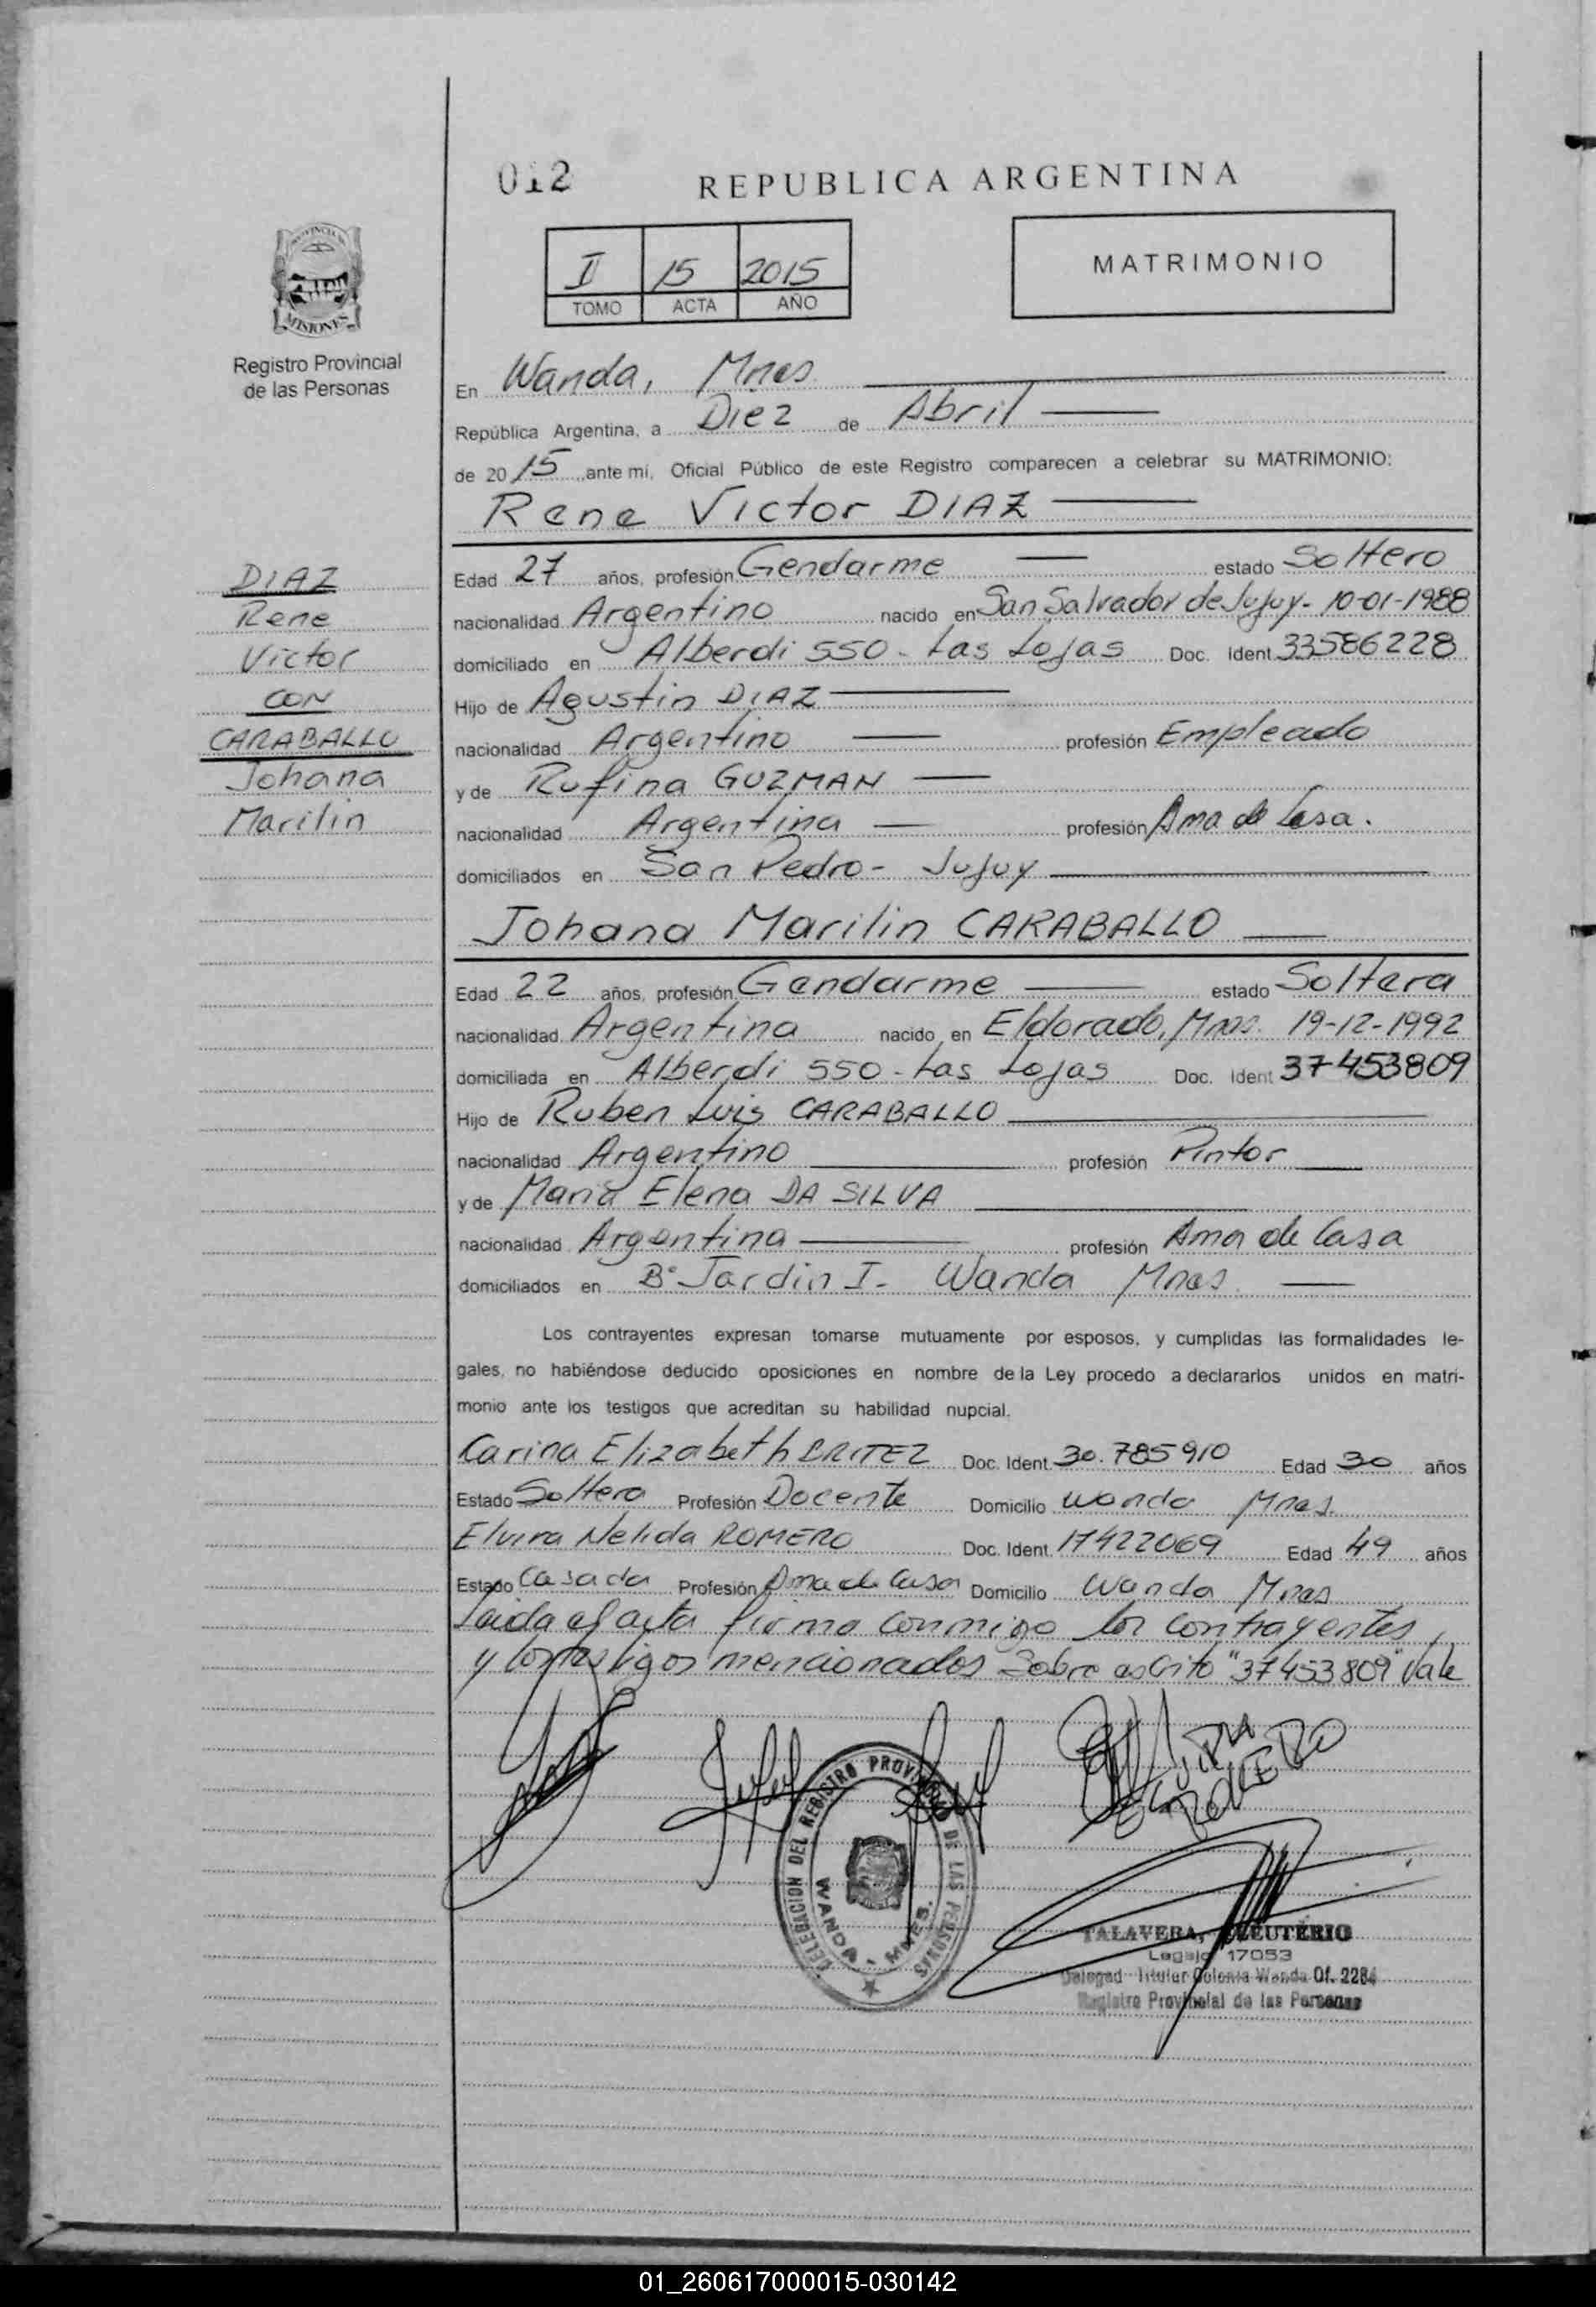 012
REPUBLICA ARGENTINA
II 15 2015
TOMO ACTA AÑO
MATRIMONIO
MISIONES
Registro Provincial
de las Personas
En Wanda, Mnes.
República Argentina, a Diez de Abril
de 20 15 ante mí, Oficial Público de este Registro comparecen a celebrar su MATRIMONIO:
Rene Victor DIAZ
DIAZ
Rene
Victor
CON
CARABALLO
Johana
Marilin
Edad 27 años, profesión Gendarme estado Soltero
nacionalidad Argentino nacido en San Salvador de Jujuy - 10-01-1988
domiciliado en Alberdi 550 - Las Lojas Doc. Ident. 33586228
Hijo de Agustin DIAZ
nacionalidad Argentino profesión Empleado
y de Rufina GUZMAN
nacionalidad Argentina profesión Ama de Casa.
domiciliados en San Pedro - Jujuy
Johana Marilin CARABALLO
Edad 22 años, profesión Gendarme estado Soltera
nacionalidad Argentina nacido en Eldorado, Mnes. 19-12-1992
domiciliada en Alberdi 550 - Las Lojas Doc. Ident 37453809
Hijo de Ruben Luis CARABALLO
nacionalidad Argentino profesión Pintor
y de Maria Elena DA SILVA
nacionalidad Argentina profesión Ama de Casa
domiciliados en B° Jardin I - Wanda Mnes.
Los contrayentes expresan tomarse mutuamente por esposos, y cumplidas las formalidades le-
gales, no habiéndose deducido oposiciones en nombre de la Ley procedo a declararlos unidos en matri-
monio ante los testigos que acreditan su habilidad nupcial.
Carina Elizabeth BRITEZ Doc. Ident. 30.785910 Edad 30 años
Estado Soltera Profesión Docente Domicilio Wanda Mnes.
Elvira Nelida ROMERO Doc. Ident. 17422069 Edad 49 años
Estado Casada Profesión Ama de Casa Domicilio Wanda Mnes
Leida el acta firma conmigo los contrayentes
y los testigos mencionados Sobre escrito "37453809" Vale
ROMERO
DELEGACION DEL REGISTRO PROVINCIAL DE LAS PERSONAS
WANDA - MNES.
TALAVERA, ELEUTERIO
Legajo 17053
Delegad Titular Colonia Wanda Of. 2284
Registro Provincial de las Personas
01_260617000015-030142